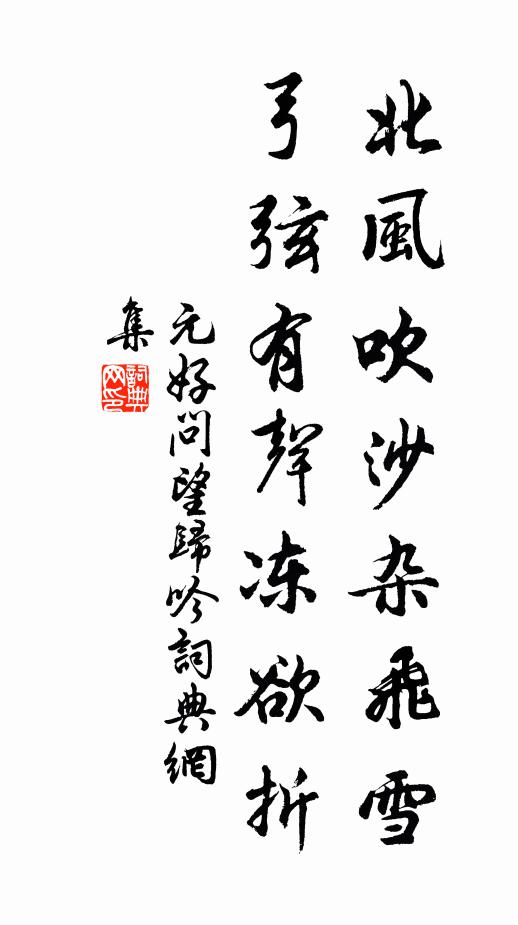 北風吹沙杂飛雪
弓弦有聲冻欲折
元好問望歸吟詞典網
集
詞典网印